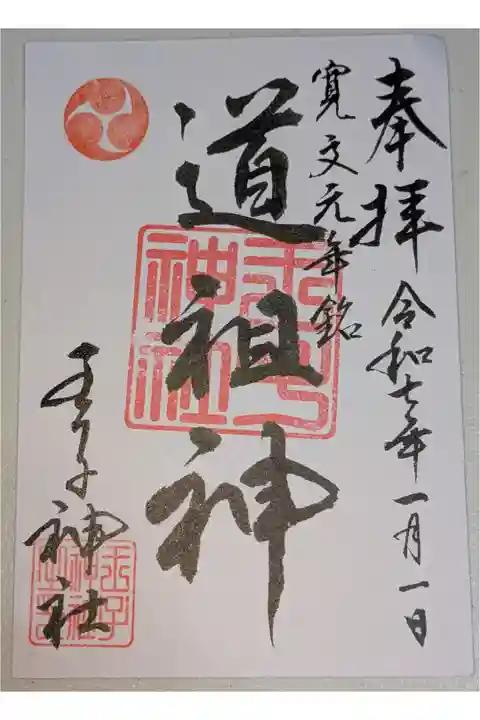 奉拝 令和七年一月一日
寛文元年銘
道祖神
王子神社
王子神社